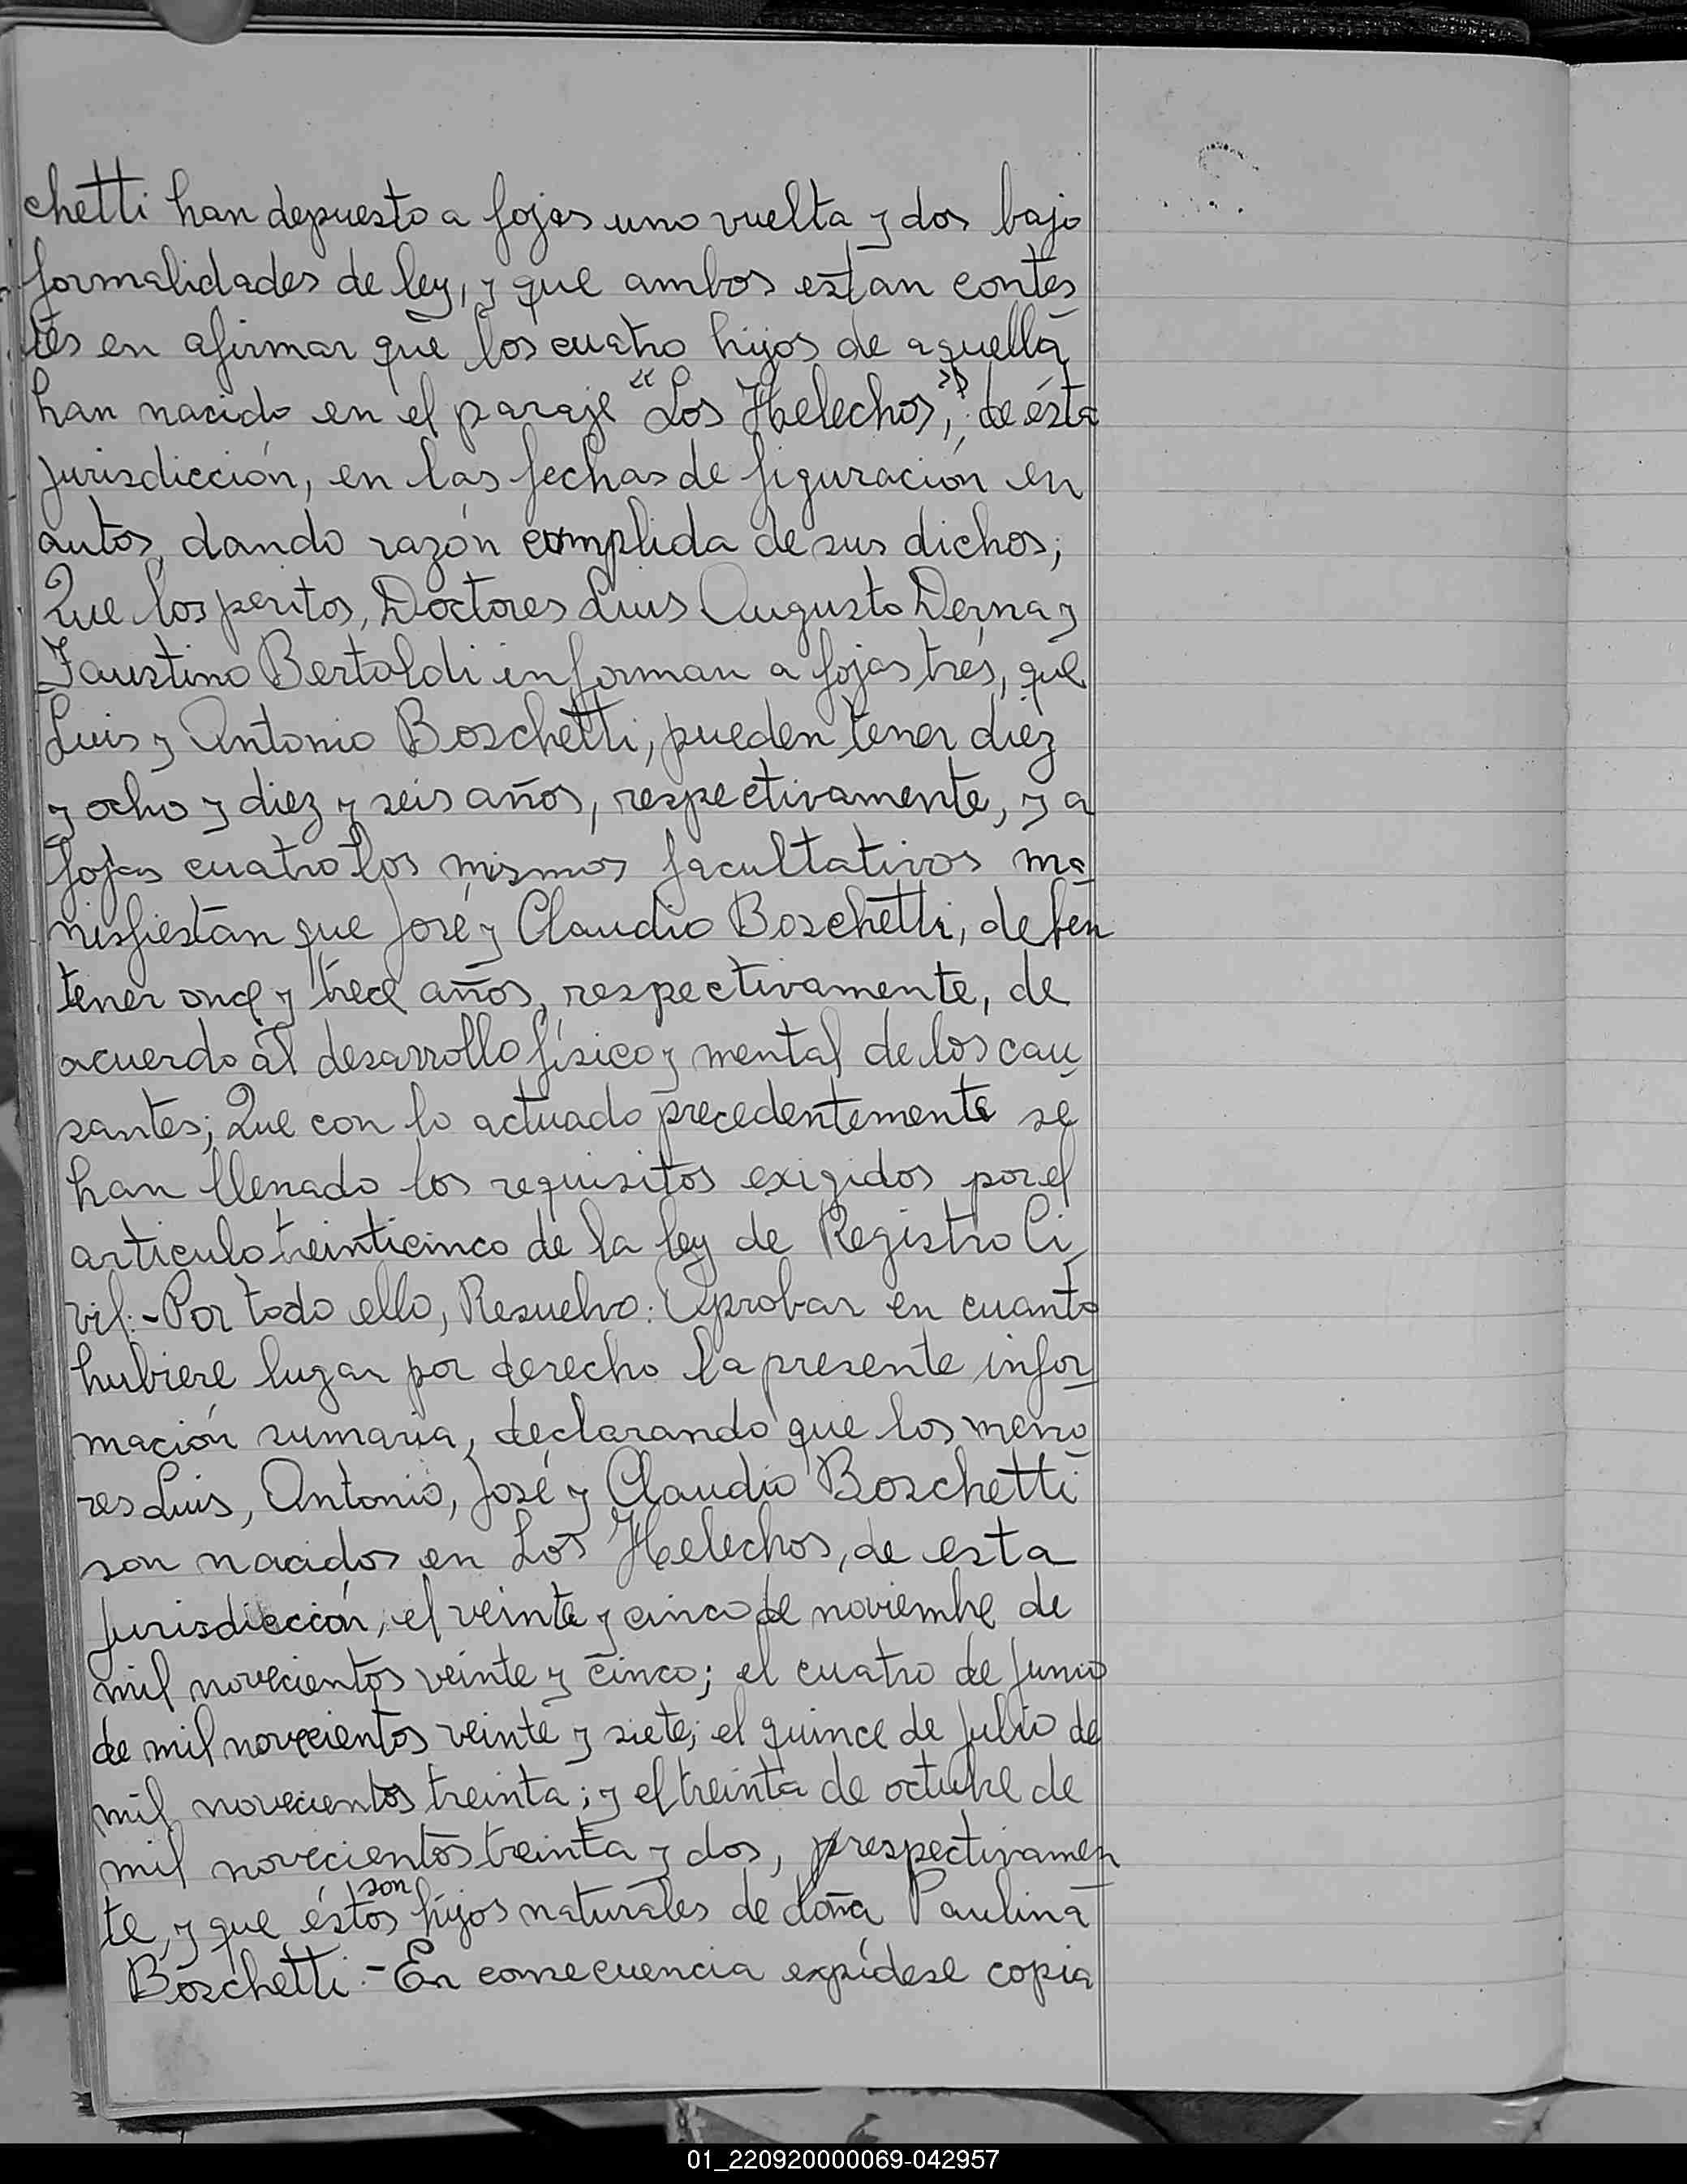 chetti han depuesto a fojas uno vuelta y dos bajo
formalidades de ley, y que ambos estan contes
tes en afirmar que los cuatro hijos de aquella
han nacido en el paraje "Los Helechos", de ésta
jurisdicción, en las fechas de figuración en
autos, dando razón cumplida de sus dichos;
Que los peritos, Doctores Luis Augusto Derna y
Faustino Bertoldi informan a fojas tres, que
Luis y Antonio Boschetti, pueden tener diez
y ocho y diez y seis años, respectivamente, y a
fojas cuatro los mismos facultativos ma
nisfiestan que José y Claudio Boschetti, deben
tener once y trece años, respectivamente, de
acuerdo al desarrollo físico y mental de los cau
santes; Que con lo actuado precedentemente se
han llenado los requisitos exigidos por el
articulo treinticinco de la ley de Registro Ci
vil:-Por todo ello, Resuelvo: Aprobar en cuanto
hubiere lugar por derecho la presente infor
mación sumaria, declarando que los meno
res Luis, Antonio, José y Claudio Boschetti
son nacidos en Los Helechos, de esta
jurisdicción, el veinte y cinco de noviembre de
mil novecientos veinte y cinco; el cuatro de Junio
de mil novecientos veinte y siete; el quince de Julio de
mil novecientos treinta; y el treinta de octubre de
mil novecientos treinta y dos, respectivamen
te, y que éstos son hijos naturales de doña Paulina
Boschetti.-En consecuencia expídese copia
01_220920000069-042957